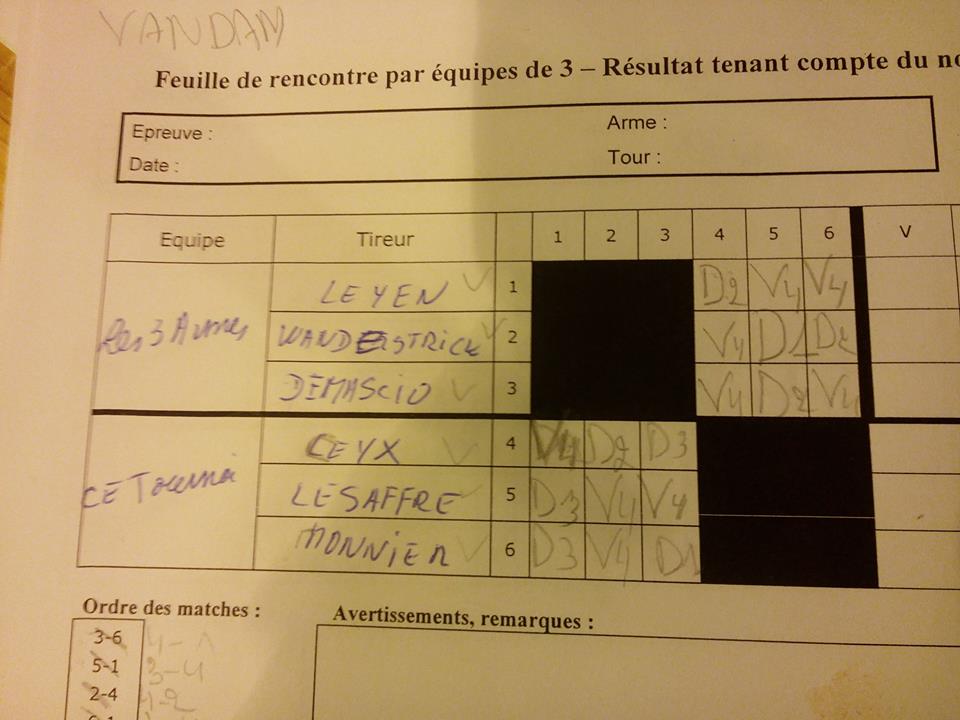 VANDAM
Feuille de rencontre par équipes de 3 – Résultat tenant compte du no
Epreuve : Arme :
Date : Tour :
Equipe Tireur 1 2 3 4 5 6 V
Les 3 Armes LEYEN V 1 D2 V4 V4
WANDERSTRICK V 2 V4 D1 D2
DEMASCIO V 3 V4 D2 V4
CE Tournai CEYX V 4 V4 D2 D3
LESAFFRE 5 D3 V4 V4
MONNIER V 6 D3 V4 D1
Ordre des matches : Avertissements, remarques :
3-6 4-1
5-1 3-4
2-4 4-2